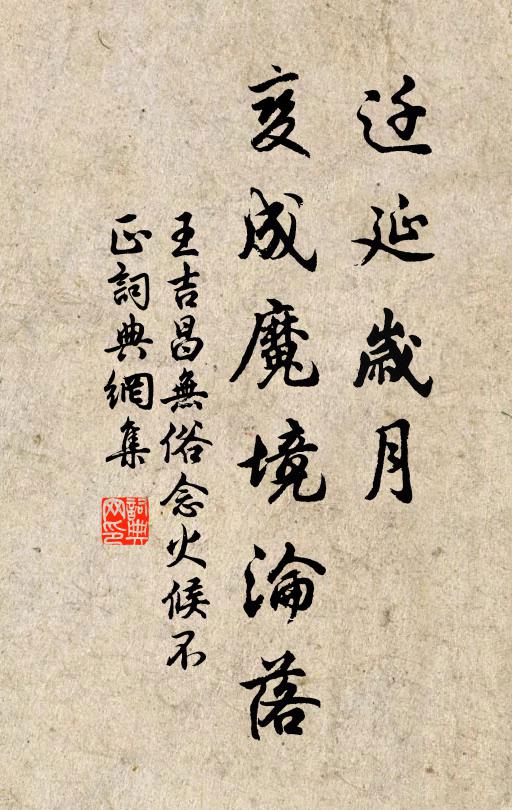 迁延歲月
变成魔境淪落
王吉昌無俗念火候不
正詞典網集
詞典
网印